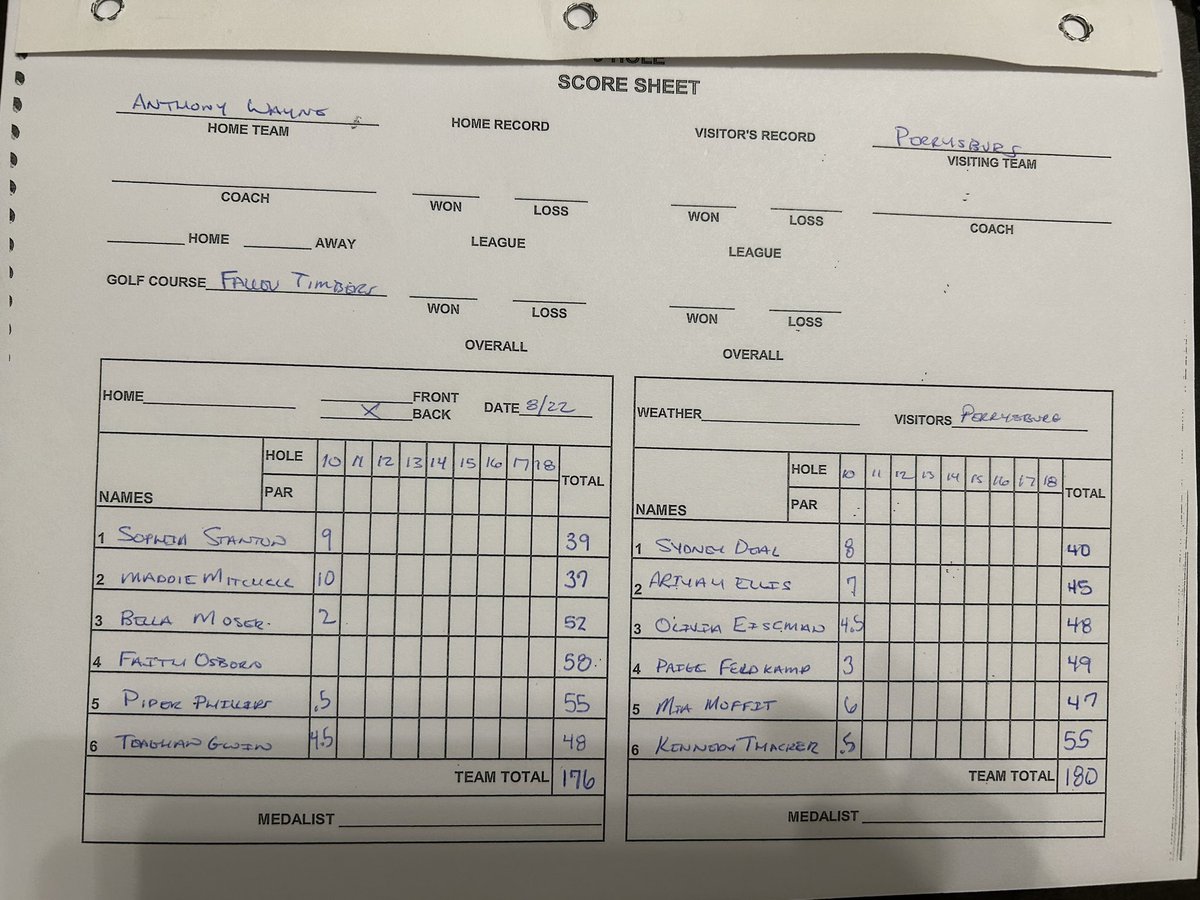 SCORE SHEET
ANTHONY WAYNE
HOME TEAM
HOME RECORD
VISITOR'S RECORD
PERRYSBURG
VISITING TEAM
COACH
WON LOSS
WON LOSS
COACH
HOME AWAY
LEAGUE
LEAGUE
GOLF COURSE FALLEN TIMBERS
WON LOSS
WON LOSS
OVERALL
OVERALL
HOME
FRONT
X BACK
DATE 8/22
HOLE 10 11 12 13 14 15 16 17 18 TOTAL
PAR
NAMES
1 SOPHIA STANTON 9 39
2 MADDIE MITCHELL 10 37
3 BELLA MOSER 2 52
4 FAITH OSBORN 58
5 PIPER PHILLIPS .5 55
6 TEAGHAN GWIN 4.5 48
TEAM TOTAL 176
MEDALIST
WEATHER
VISITORS PERRYSBURG
HOLE 10 11 12 13 14 15 16 17 18 TOTAL
PAR
NAMES
1 SYDNEY DEAL 8 40
2 ARIYAH ELLIS 7 45
3 OLIVIA EISEMAN 4.5 48
4 PAIGE FELDKAMP 3 49
5 MIA MOFFIT 6 47
6 KENNEDY THACKER .5 55
TEAM TOTAL 180
MEDALIST